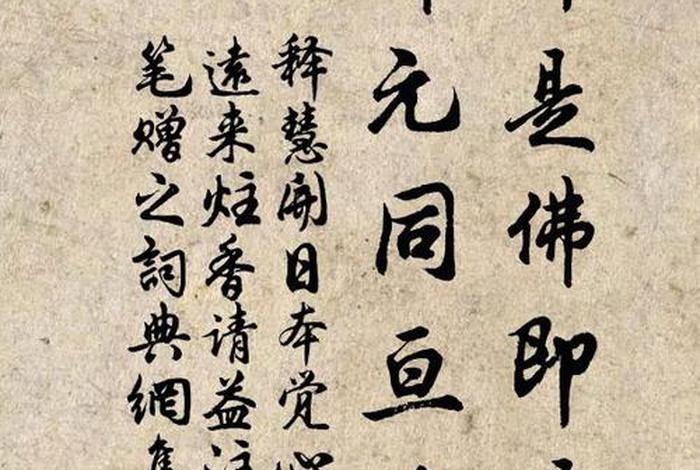 是佛即
元同亘
释慧開日本觉心
遠来炷香请益
笔赠之詞典網